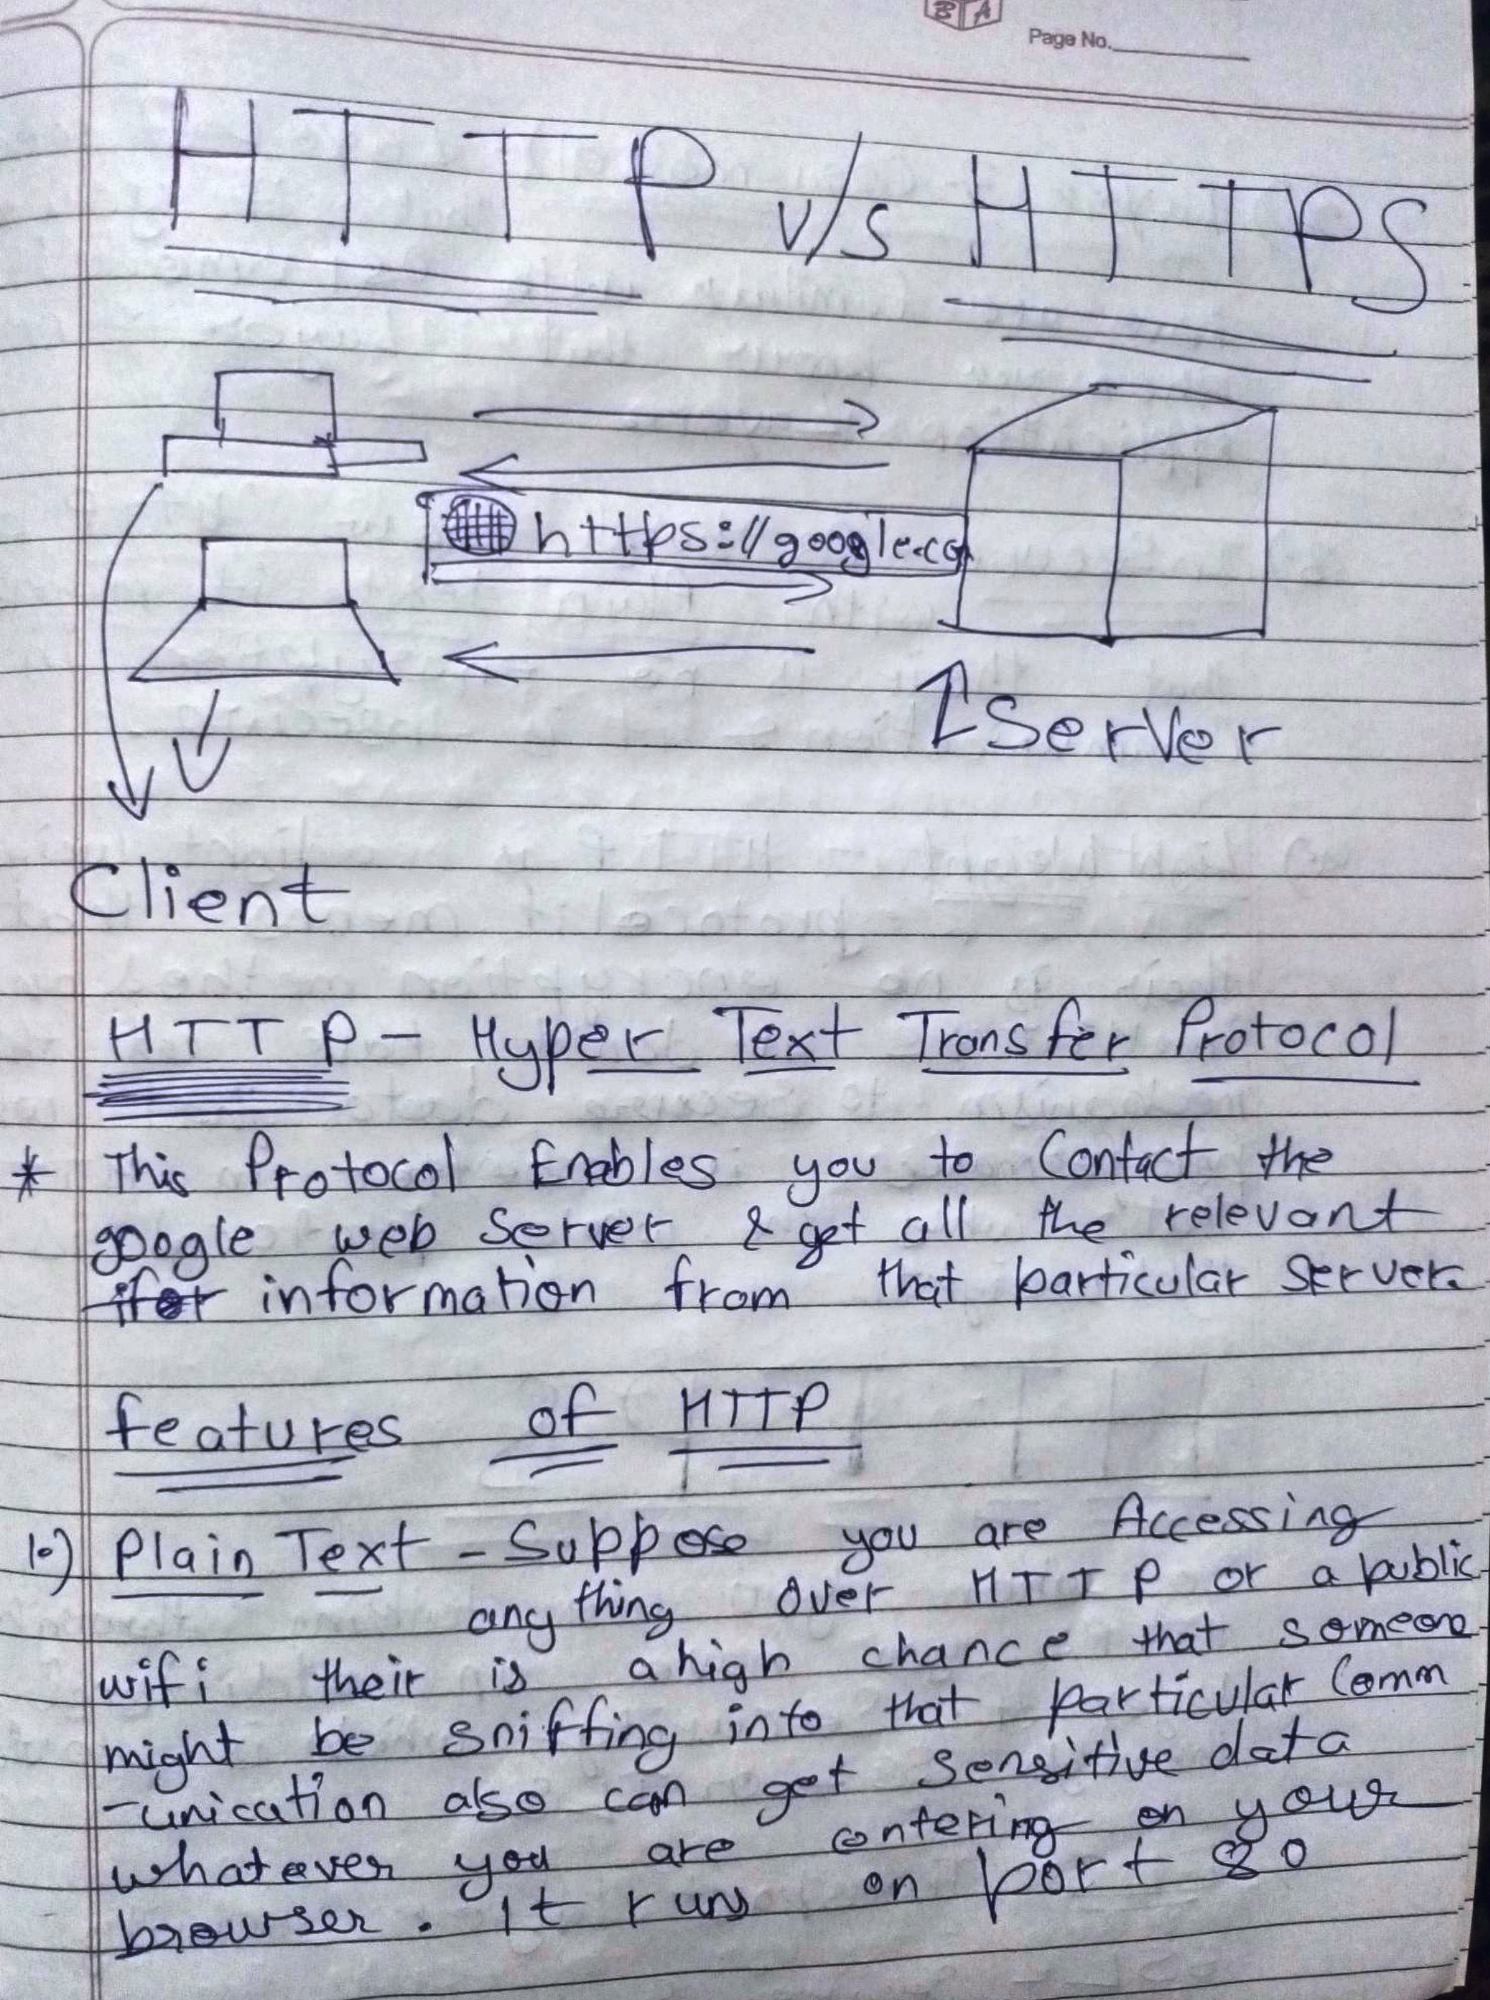 BA
Page No.
HTTP v/s HTTPS
https://google.co
Server
Client
HTTP - Hyper Text Transfer Protocol
* This Protocol Enables you to Contact the
google web server & get all the relevant
information from that particular server.
features of HTTP
1.) Plain Text - Suppose you are Accessing
any thing over HTTP or a public
wifi their is a high chance that someone
might be sniffing into that particular Comm
-unication also can get sensitive data
whatever you are entering on your
browser. It runs on port 80